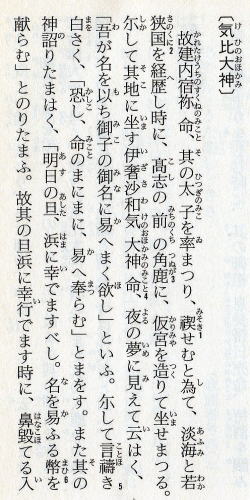 〔気比大神〕
故建内宿祢命、其の太子を率まつり、禊せむと為て、淡海と若
狭国を経歴し時に、高志の前の角鹿に、仮宮を造りて坐せまつる。
尓して其地に坐す伊奢沙和気大神命、夜の夢に見えて云はく、
「吾が名を以ち御子の御名に易へまく欲し」といふ。尓して言禱き
白さく、「恐し、命のまにまに、易へ奉らむ」とまをす。また其の
神詔りたまはく、「明日の旦、浜に幸でますべし。名を易ふる幣を
献らむ」とのりたまふ。故其の旦浜に幸行でます時に、鼻毀てる入